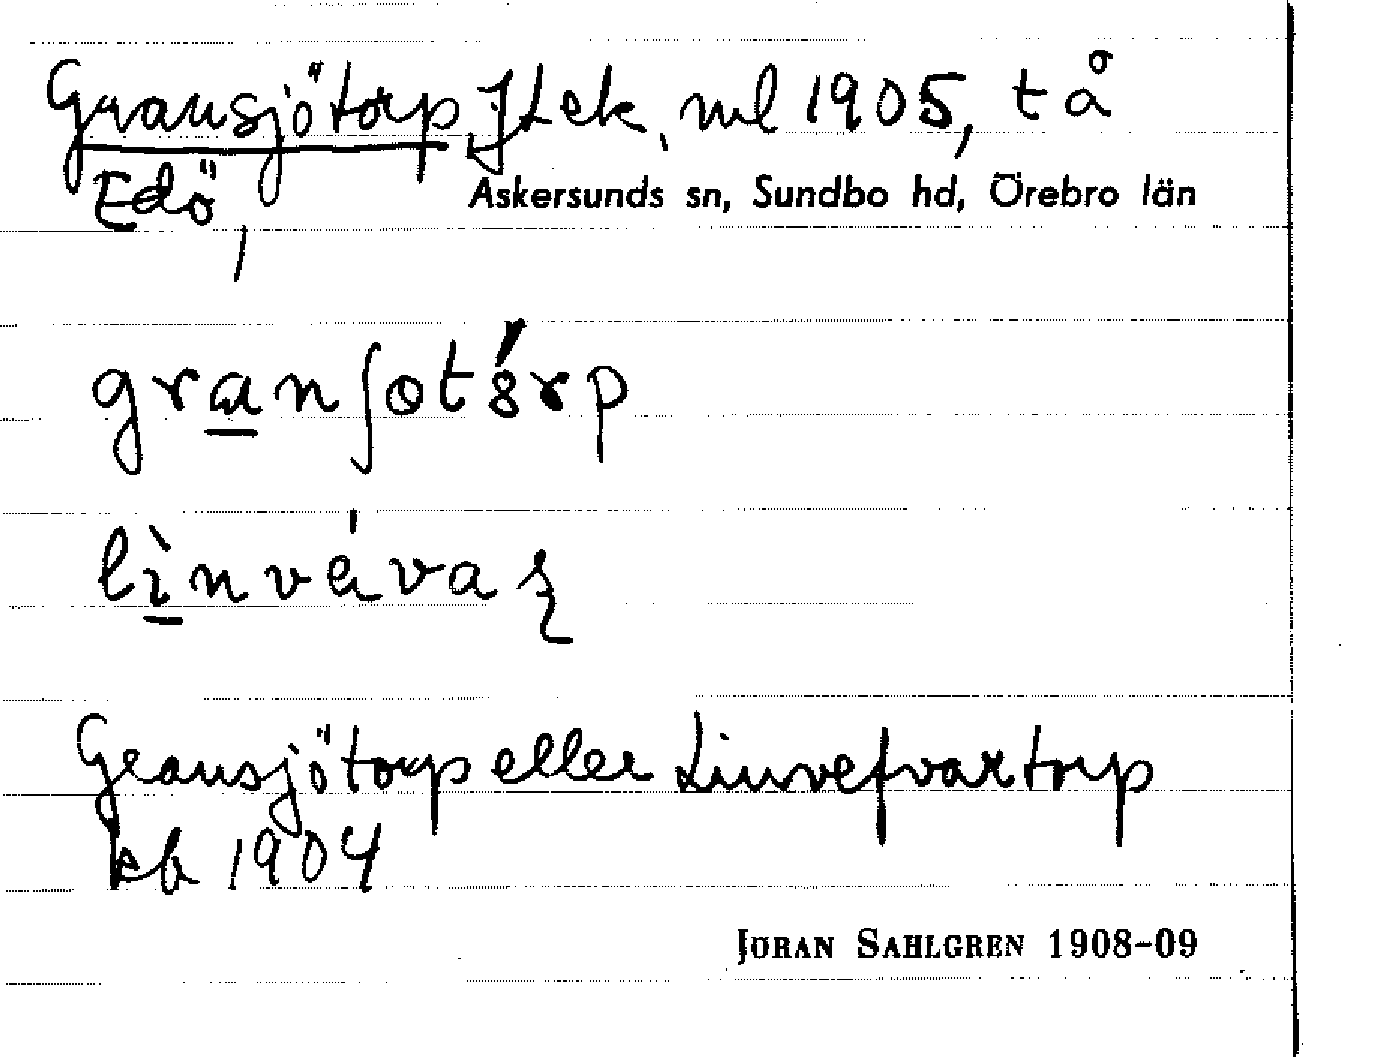 Gransjötorp Jlek, ml 1905, t å
Edö,
Askersunds sn, Sundbo hd, Örebro län
granʃotórp
lìnvávaʂ
Gransjötorp eller Linvefvartorp
kb 1904
JÖRAN SAHLGREN 1908-09